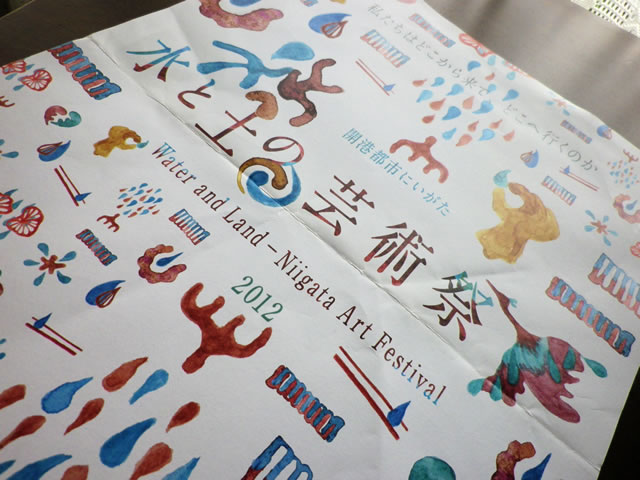 私たちはどこから来て、どこへ行くのか
開港都市にいがた
水と土の芸術祭
Water and Land – Niigata Art Festival
2012